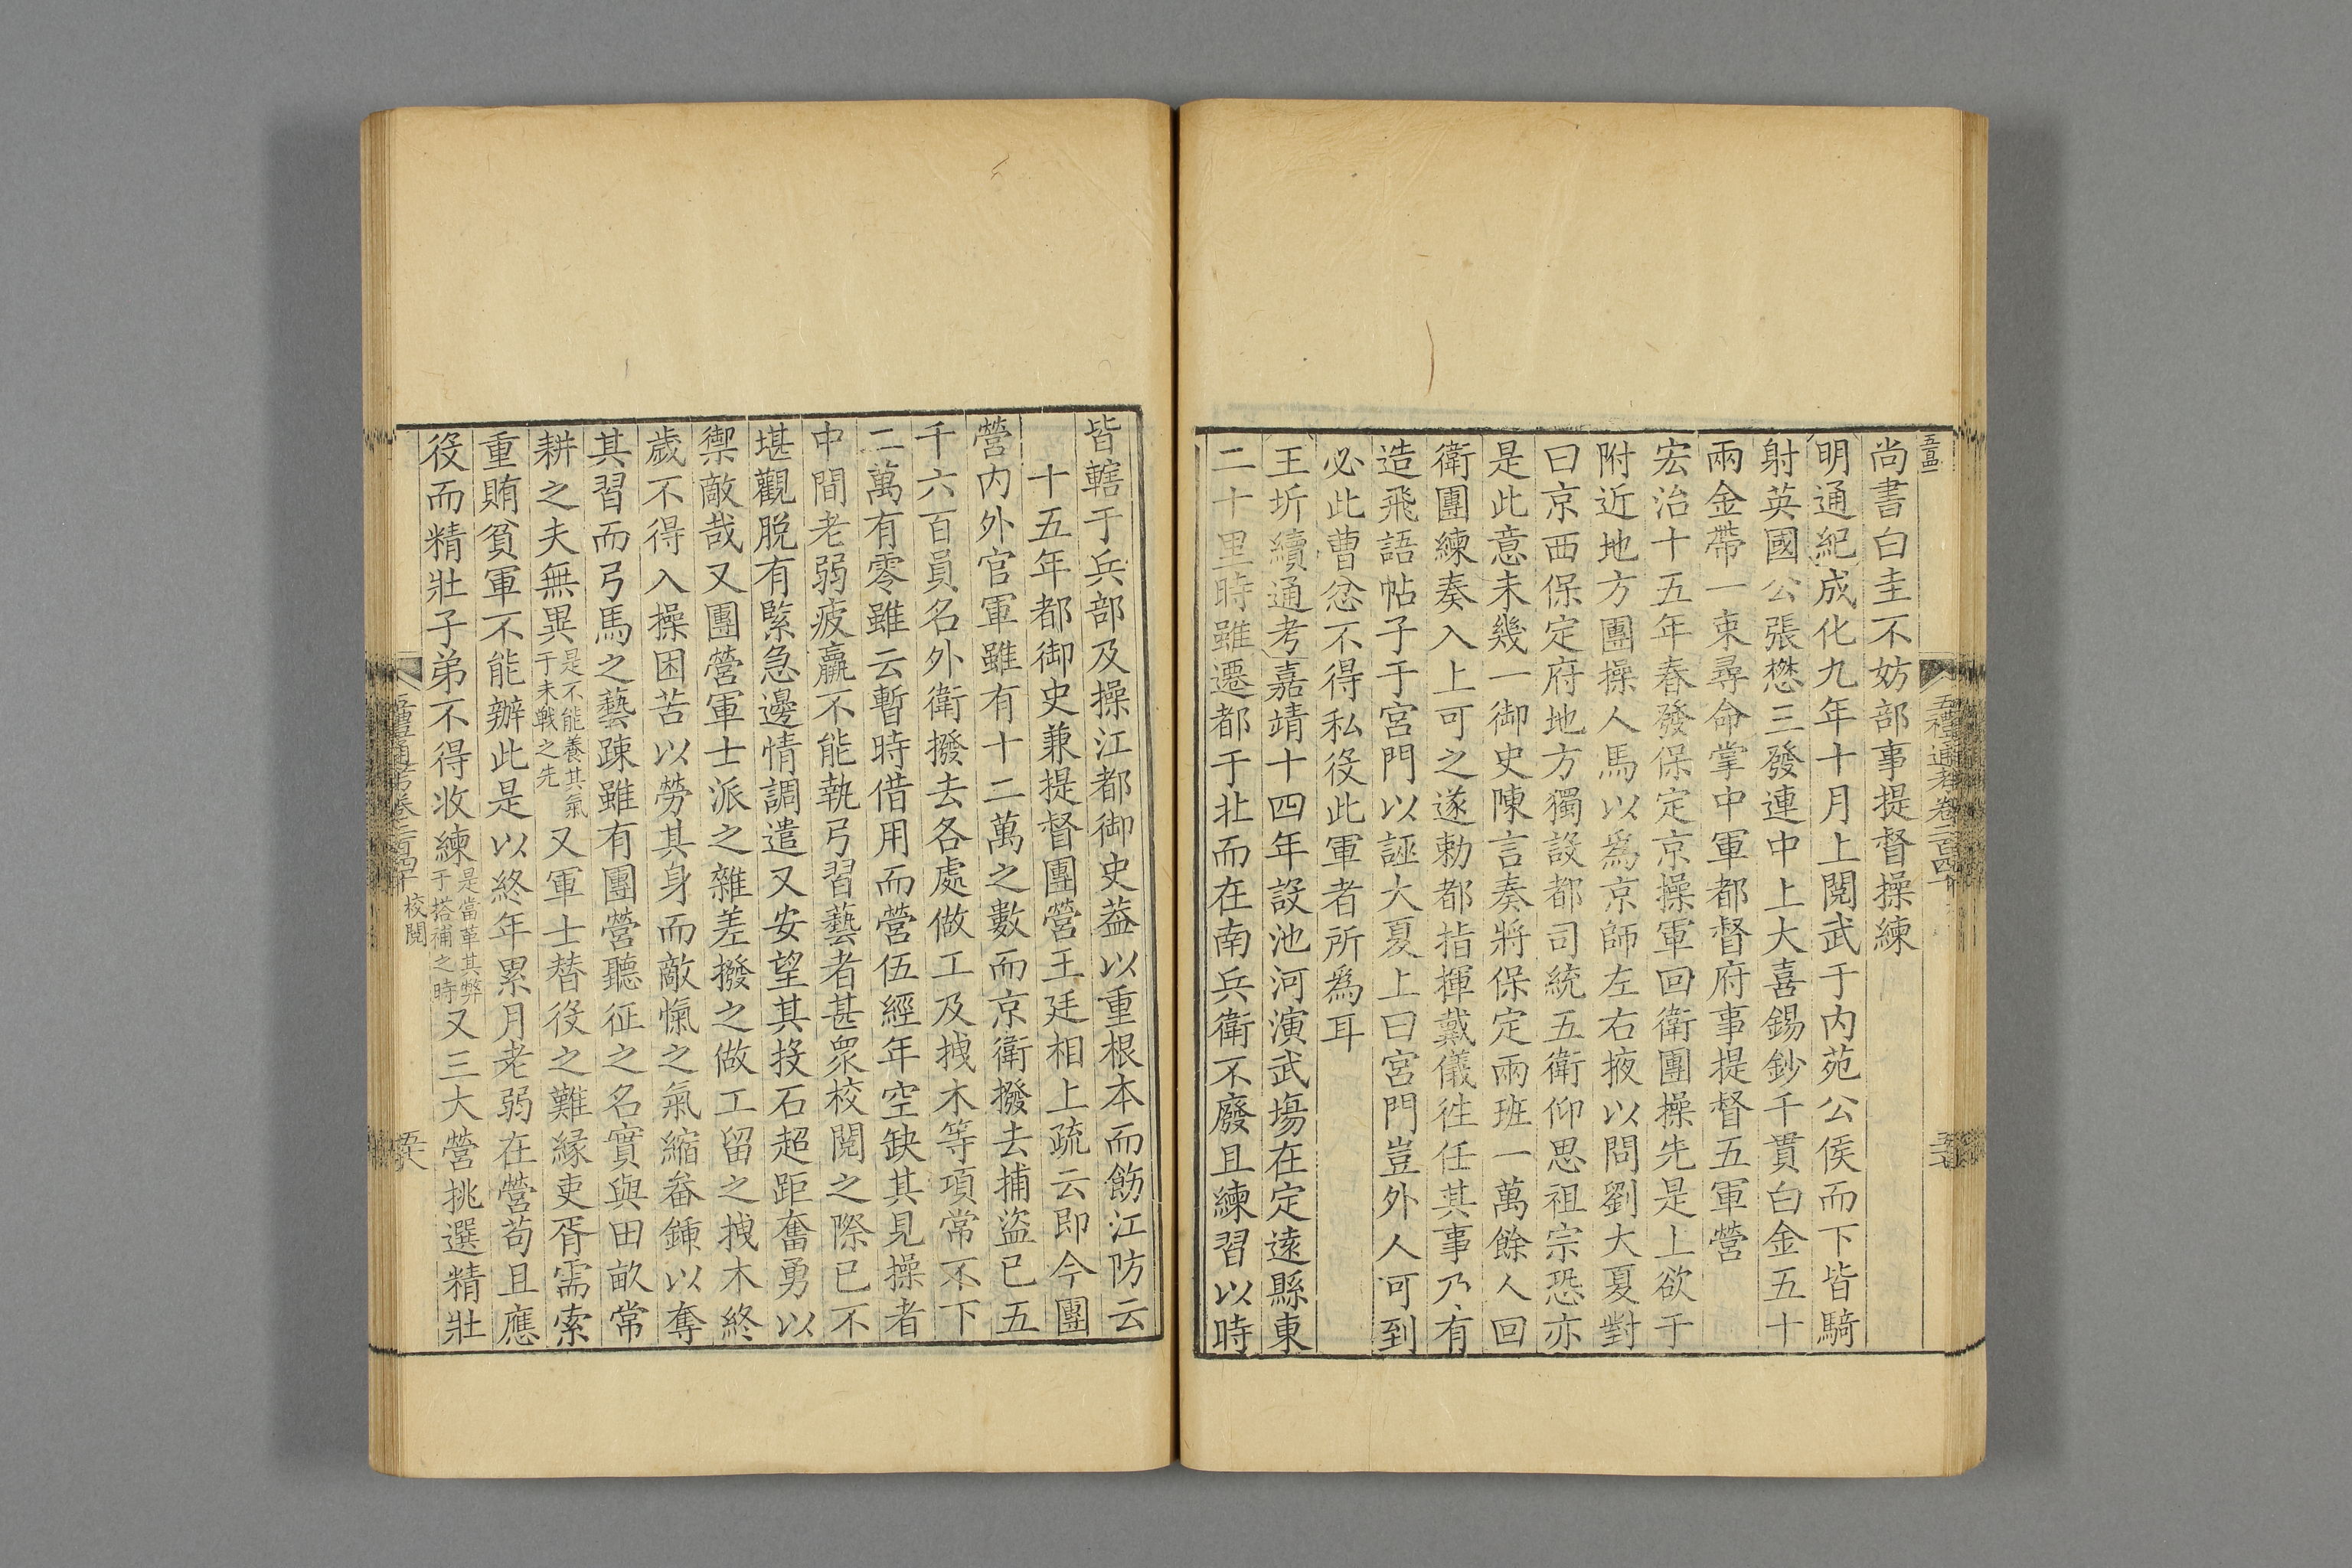 尚書白圭不妨部事提督操練
明通紀成化九年十月上閱武于内苑公侯而下皆騎
射英國公張懋三發連中上大喜錫鈔千貫白金五十
兩金帶一束尋命掌中軍都督府事提督五軍營
宏治十五年春發保定京操軍回衛團操先是上欲于
附近地方團操人馬以爲京師左右掖以問劉大夏對
曰京西保定府地方獨設都司統五衛仰思祖宗恐亦
是此意未幾一御史陳言奏將保定兩班一萬餘人回
衛團練奏入上可之遂勅都指揮戴儀往任其事乃有
造飛語帖子于宮門以誣大夏上曰宮門豈外人可到
必此曹忿不得私役此軍者所爲耳
王圻續通考嘉靖十四年設池河演武塲在定遠縣東
二十里時雖遷都于北而在南兵衛不廢且練習以時
五禮通考卷二百四十
皆轄于兵部及操江都御史葢以重根本而飭江防云
十五年都御史兼提督團營王廷相上疏云即今團
營内外官軍雖有十二萬之數而京衛撥去捕盜已五
千六百員名外衛撥去各處做工及拽木等項常不下
二萬有零雖云暫時借用而營伍經年空缺其見操者
中間老弱疲羸不能執弓習藝者甚眾校閱之際已不
堪觀脱有緊急邊情調遣又安望其投石超距奮勇以
禦敵哉又團營軍士派之雜差撥之做工留之拽木終
歲不得入操困苦以勞其身而敵愾之氣縮畚鍤以奪
其習而弓馬之藝疎雖有團營聽征之名實與田畝常
耕之夫無異是不能養其氣于未戰之先又軍士替役之難緣吏胥需索
重賄貧軍不能辦此是以終年累月老弱在營苟且應
役而精壯子弟不得收練是當革其弊于搭補之時又三大營挑選精壯
五禮通考卷二百四十 校閱